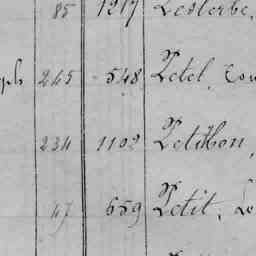 85 1217 Lesterbe,
ph 245 548 Petel, Cou
234 1102 Petithon,
47 659 Petit, Lo